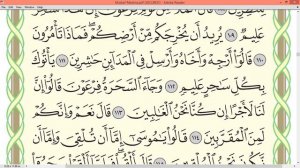 عَلِيمٌ ١٠٩ يُرِيدُ أَن يُخْرِجَكُم مِّنْ أَرْضِكُمْ فَمَاذَا تَأْمُرُونَ
١١٠ قَالُوٓا۟ أَرْجِهْ وَأَخَاهُ وَأَرْسِلْ فِى ٱلْمَدَآئِنِ حَـٰشِرِينَ ١١١ يَأْتُوكَ
بِكُلِّ سَـٰحِرٍ عَلِيمٍ ١١٢ وَجَآءَ ٱلسَّحَرَةُ فِرْعَوْنَ قَالُوٓا۟ إِنَّ
لَنَا لَأَجْرًا إِن كُنَّا نَحْنُ ٱلْغَـٰلِبِينَ ١١٣ قَالَ نَعَمْ وَإِنَّكُمْ
لَمِنَ ٱلْمُقَرَّبِينَ ١١٤ قَالُوا۟ يَـٰمُوسَىٰٓ إِمَّآ أَن تُلْقِىَ وَإِمَّآ أَن